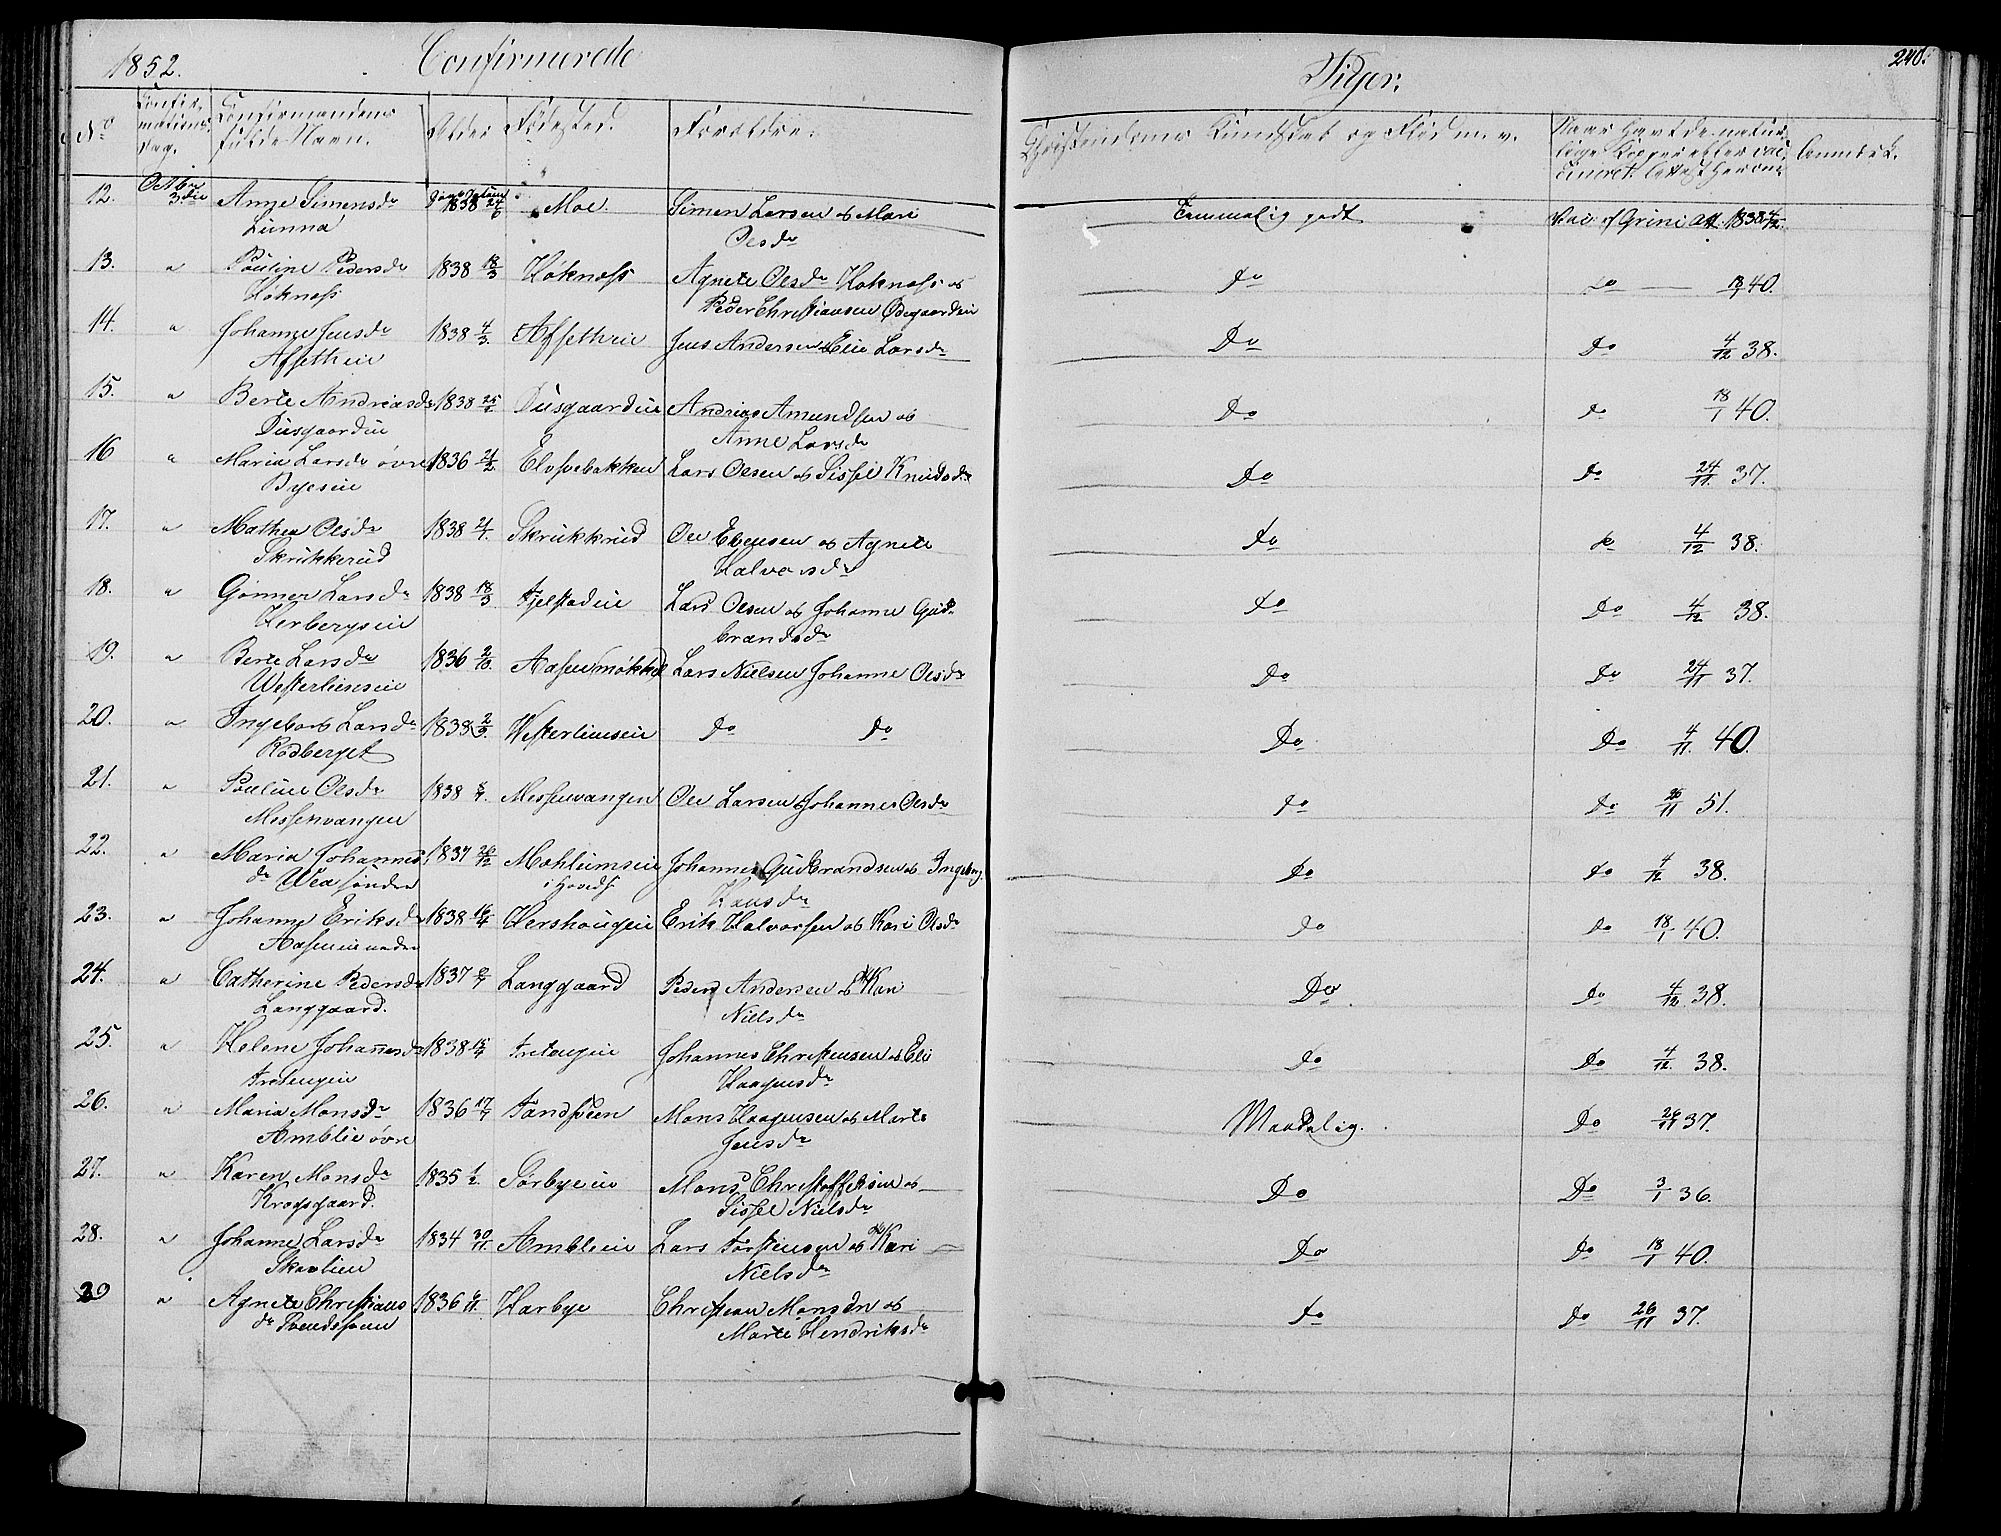 1852. Confirmerede Piger. 240.
No Confirmations Dag. Confirmandens fulde Navn. Alder Fødested. Forældre. Christendoms Kundskab og Flid m. v. Naar havt de naturlige Kopper eller vaccineret. Attest herom Anmærk.
12. Octbr 3die Anne Simensdr 1838 24/6 Moe. Simen Larsen og Mari Temmelig godt Vac. af Grini Att. 1838 4/12.
Lunna Olsdr
13. " Pauline Pedersdr 1838 18/3 Høknæss Agnete Olsdr Høknæss og Do Do 18/1 40.
Høknæss Peder Christiansen Ødegaarden
14. " Johanne Jensdr 1838 4/3 Assethrie Jens Andersen og Elie Larsdr Do Do 4/12 38.
Assethrie
15. " Berte Andreasdr 1838 25/2 Diisgaardeie Andreas Amundsen og Do Do 18/1 40.
Diisgaardeie Anne Larsdr
16 " Maria Larsdr øvre 1836 21/2 Elvsvebakken Lars Olsen og Sissel Knudsdr Do Do 24/11 37.
Byeseie
17. " Mathea Olsdr 1838 21/1 Skrukkrud Ole Evensen og Agnete Do Do 4/12 38.
Skrukkerud Halvorsdr
18. " Gønner Larsdr 1838 18/3 Fjelstadeie Lars Olsen og Johanne Gud- Do Do 4/12 38.
Herbergseie brandsdr
19. " Berte Larsdr 1836 2/10 Aasensmøkked Lars Nielsen Johanne Olsdr Do Do 24/11 37.
Westerlienseie
20. " Ingeborg Larsdr 1838 2/9 Westerlienseie Do Do Do Do 4/11 40.
Rødberget
21. " Pauline Olsdr 1838 8/4 Messenvangen Ole Larsen og Johanne Olsdr Do Do 26/11 51.
Messenvangen
22. " Maria Johannes 1837 26/12 Mohlumseie Johannes Gudbrandsen og Ingeborg Do Do 4/12 38.
dr Wea søndre i Hovedf. Hansdr
23. " Johanne Eriksdr 1838 16/4 Hershougeie Erik Halvorsen og Kari Olsdr Do Do 18/1 40.
Aaseneie nedre
24. " Catherine Pedersdr 1837 Langgaard Peder Andersen og Kari Do Do 4/12 38.
Langgaard. Nielsdr
25. " Helene Johannesdr 1838 Fretengeie Johannes Christensen og Eli Do Do 4/12 38.
Fretengeie Haagensdr
26. " Maria Monsdr 1836 17/7 Tandsveen Mons Haagensen og Marte Maadelig. Do 26/11 37.
Amblie øvre Jensdr
27. " Karen Monsdr 1835 1/2 Sørbyeeie Mons Christoffersen og Do Do 3/1 36.
Krogsgaard. Sissel Nielsdr
28. " Johanne Larsdr 1834 30/11 Amblieeie Lars Torstensen og Kari Do Do 18/1 40.
Skavlien Nielsdr
29 " Agnete Christians 1836 6/11 Harbye Christian Monsen og Do Do 26/11 37.
dr Svendsveen Marte Hendriksdr